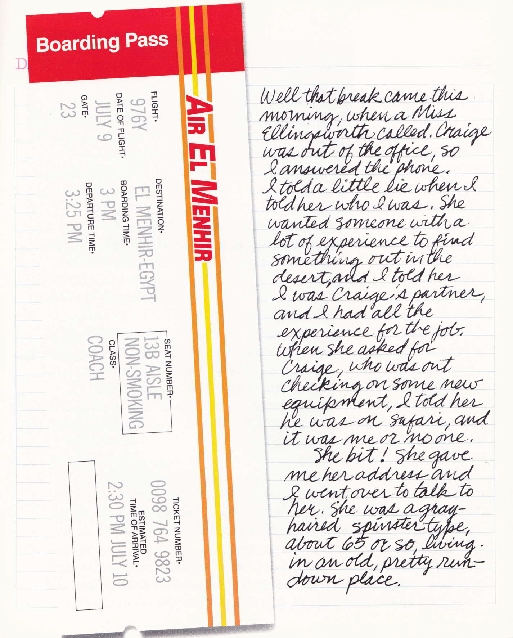 D
Boarding Pass
AIR EL MENHIR
FLIGHT•
976Y
DATE OF FLIGHT•
JULY 9
GATE•
23
DESTINATION•
EL MENHIR-EGYPT
BOARDING TIME•
3 PM
DEPARTURE TIME•
3:25 PM
SEAT NUMBER•
13B AISLE
NON-SMOKING
CLASS•
COACH
TICKET NUMBER•
0098 764 9823
ESTIMATED
TIME OF ARRIVAL•
2:30 PM JULY 10
Well that break came this
morning, when a Miss
Ellingsworth called. Craige
was out of the office, so
I answered the phone.
I told a little lie when I
told her who I was. She
wanted someone with a
lot of experience to find
something out in the
desert, and I told her
I was Craige's partner,
and I had all the
experience for the job.
When she asked for
Craige, who was out
checking on some new
equipment, I told her
he was on safari, and
it was me or no one.
She bit! She gave
me her address and
I went over to talk to
her. She was a gray-
haired spinster type,
about 65 or so, living
in an old, pretty run-
down place.